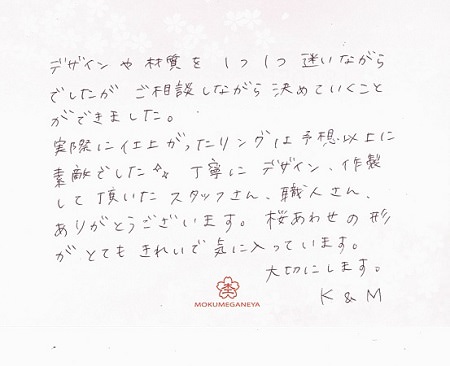 デザインや材質を1つ1つ迷いながら
でしたが ご相談しながら決めていくこと
ができました。
実際に仕上がったリングは予想以上に
素敵でした☆ 丁寧にデザイン、作製
して頂いたスタッフさん、職人さん、
ありがとうございます。桜あわせの形
がとてもきれいで気に入っています。
大切にします。
K & M
MOKUMEGANEYA